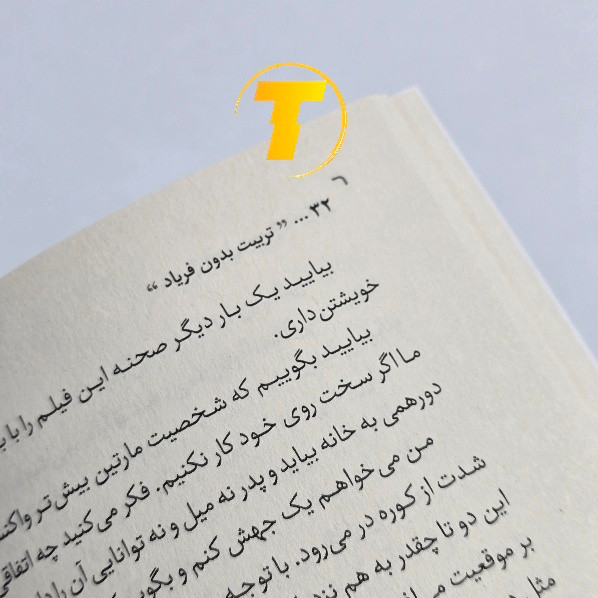 T
۳۲ ... ” تربیت بدون فریاد “
بیایید یک بار دیگر صحنه این فیلم را با
خویشتن‌داری.
بیایید بگوییم که شخصیت مارتین بیش‌تر
ما اگر سخت روی خود کار نکنیم. فکر می‌کنید چه
دورهمی به خانه بیاید و پدر نه میل و نه توانایی آن را
من می‌خواهم یک جهش کنم و
شدت از کوره در می‌رود. با
این دو تا چقدر به هم
بر موقعیت
مثل